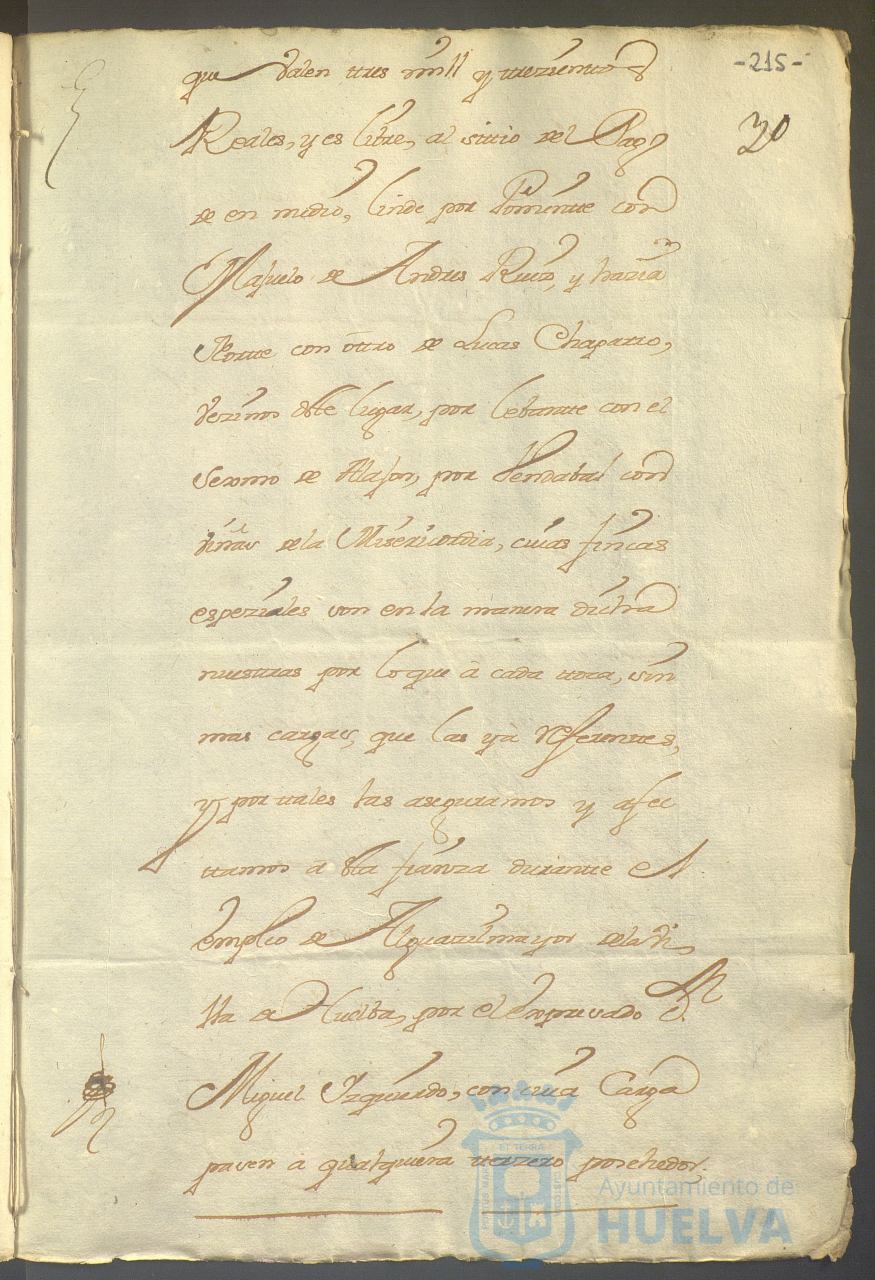 -215-
20
que valen ttres mill y ttrezientos
Reales, y es libre, al sittio del Pago
de en medio, linde por Ponientte con
Majuelo de Andres Ruiz, y hazia
Nortte con ottro de Lucas Chaparro,
vezinos deste lugar, por lebantte con el
sexmo de Aljon, por Vendabal con
viñas de la Misericordia, cuias fincas
espeziales son en la manera dicha
nuestras por lo que à cada ttoca, sin
mas cargas, que las yà referenttes,
y por ttales las aseguramos y afec
ttamos a esta fianza durantte el
empleo de Alguazil mayor de la Vi
lla de Huelba, por el expresado Dn
Miguel Yzquierdo, con cuia Carga
pasen à qualquiera tterzero posehedor.
Ayuntamiento de
HUELVA